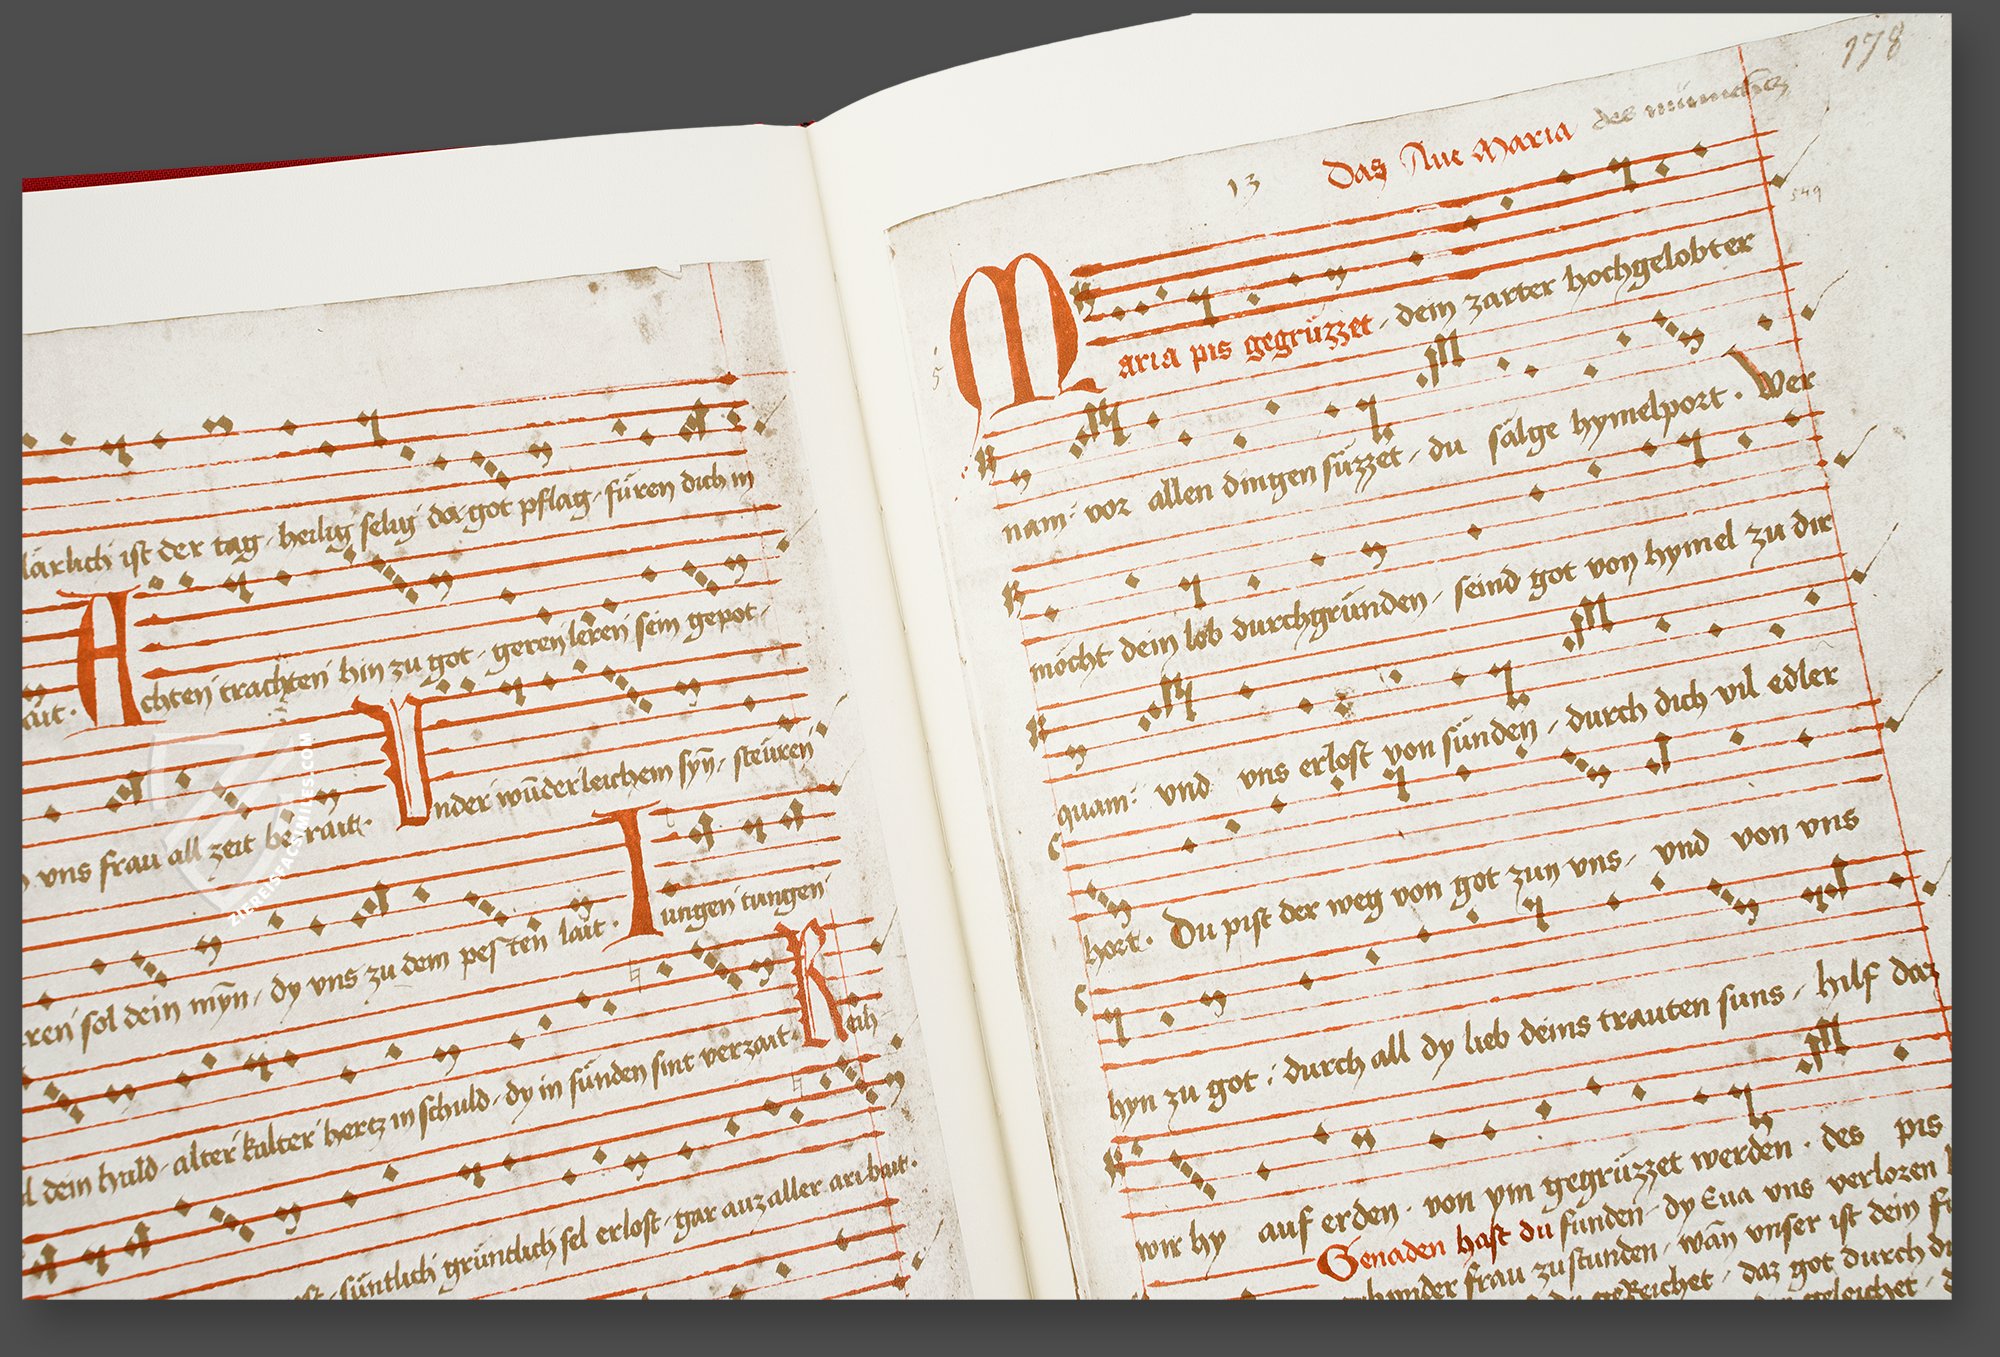 lärlich ist der tag heilig selig da got pflag füren dich in
ait · Achten trachten hin zu got geren leren sein gepot
vns frau all zeit berait · Vnder wūderleichem syn̄ steüren
ren sol dein myn̄ dy vns zu dem pesten lait · Iungen tungen
dein huld alter kalter hertz in schuld dy in sünden sint verzait · Reih
süntlich gründlich sel erlost gar auz aller aribait ·
ZIEREISFACSIMILES.COM
178
13 Das Aue Maria des münichs
549
5
Maria pis gegrüzzet dein zarter hochgelobter
nam · vor allen dingen süzzet du sälge hymelport · Wer
möcht dein lob durchgründen seind got von hymel zu dir
quam · vnd vns erlost von sünden durch dich vil edler
hort · Du pist der weg von got zun vns vnd von vns
hyn zu got · durch all dy lieb deins trauten suns hilf daz
wir hy auf erden · von ym gegrüzzet werden · des pis
Genaden hast du funden dy Eua vns verloren
frau zu stunden wān vnser ist dein
geReichet daz got durch
geleichet